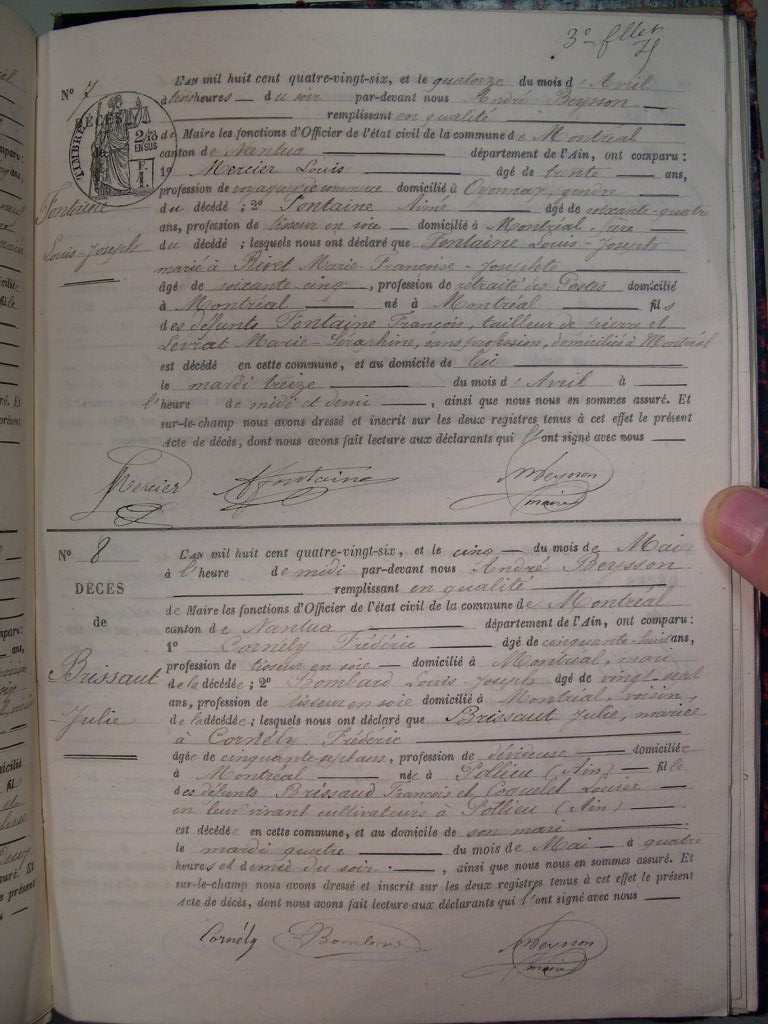 3e fllet
Nº 7
L'AN mil huit cent quatre-vingt-six, et le quatorze du mois d'Avril
à heures du soir par-devant nous André Beysson
remplissant en qualité
de Maire les fonctions d'Officier de l'état civil de la commune de Montréal
canton de Nantua département de l'Ain, ont comparu :
1º Mercier Louis âgé de trente ans,
profession de domicilié à Oyonnax, gendre
du décédé ; 2º Fontaine Aimé âgé de soixante-quatre
ans, profession de tisseur en soie domicilié à Montréal, frère
du décédé ; lesquels nous ont déclaré que Fontaine Louis-Joseph
marié à Rivet Marie Françoise-Josephte
âgé de soixante cinq, profession de retraité des Postes domicilié
à Montréal né à Montréal fils
des défunts Fontaine François, tailleur de pierre et
Levrat Marie-Séraphine, sans profession, domiciliés à Montréal
est décédé en cette commune, et au domicile de lui
le mardi treize du mois d'Avril à
l'heure de midi et demi, ainsi que nous nous en sommes assuré. Et
sur-le-champ nous avons dressé et inscrit sur les deux registres tenus à cet effet le présent
Acte de décès, dont nous avons fait lecture aux déclarants qui l'ont signé avec nous
DÉCÈS
TIMBRE
2/10
EN SUS
Fontaine
Louis-Joseph
Mercier Fontaine Beysson
maire
Nº 8
DÉCÈS
de
Brissaut
Julie
L'AN mil huit cent quatre-vingt-six, et le cinq du mois de Mai
à l'heure de midi par-devant nous André Beysson
remplissant en qualité
de Maire les fonctions d'Officier de l'état civil de la commune de Montréal
canton de Nantua département de l'Ain, ont comparu :
1º Cornély Frédéric âgé de ans,
profession de tisseur en soie domicilié à Montréal, mari
de la décédée ; 2º Bombard Louis Joseph âgé de vingt-sept
ans, profession de tisseur en soie domicilié à Montréal voisin,
de la décédée ; lesquels nous ont déclaré que Brissaut Julie, mariée
à Cornély Frédéric
âgée cinquante sept ans, profession de domiciliée
à Montréal née à Pollieu (Ain) fille
des défunts Brissaud François et Coquelet Louise
en leur vivant cultivateurs à Pollieu (Ain)
est décédée en cette commune, et au domicile de son mari
le mardi quatre du mois de Mai à quatre
heures et demie du soir, ainsi que nous nous en sommes assuré. Et
sur-le-champ nous avons dressé et inscrit sur les deux registres tenus à cet effet le présent
Acte de décès, dont nous avons fait lecture aux déclarants qui l'ont signé avec nous
Cornély Beysson
maire